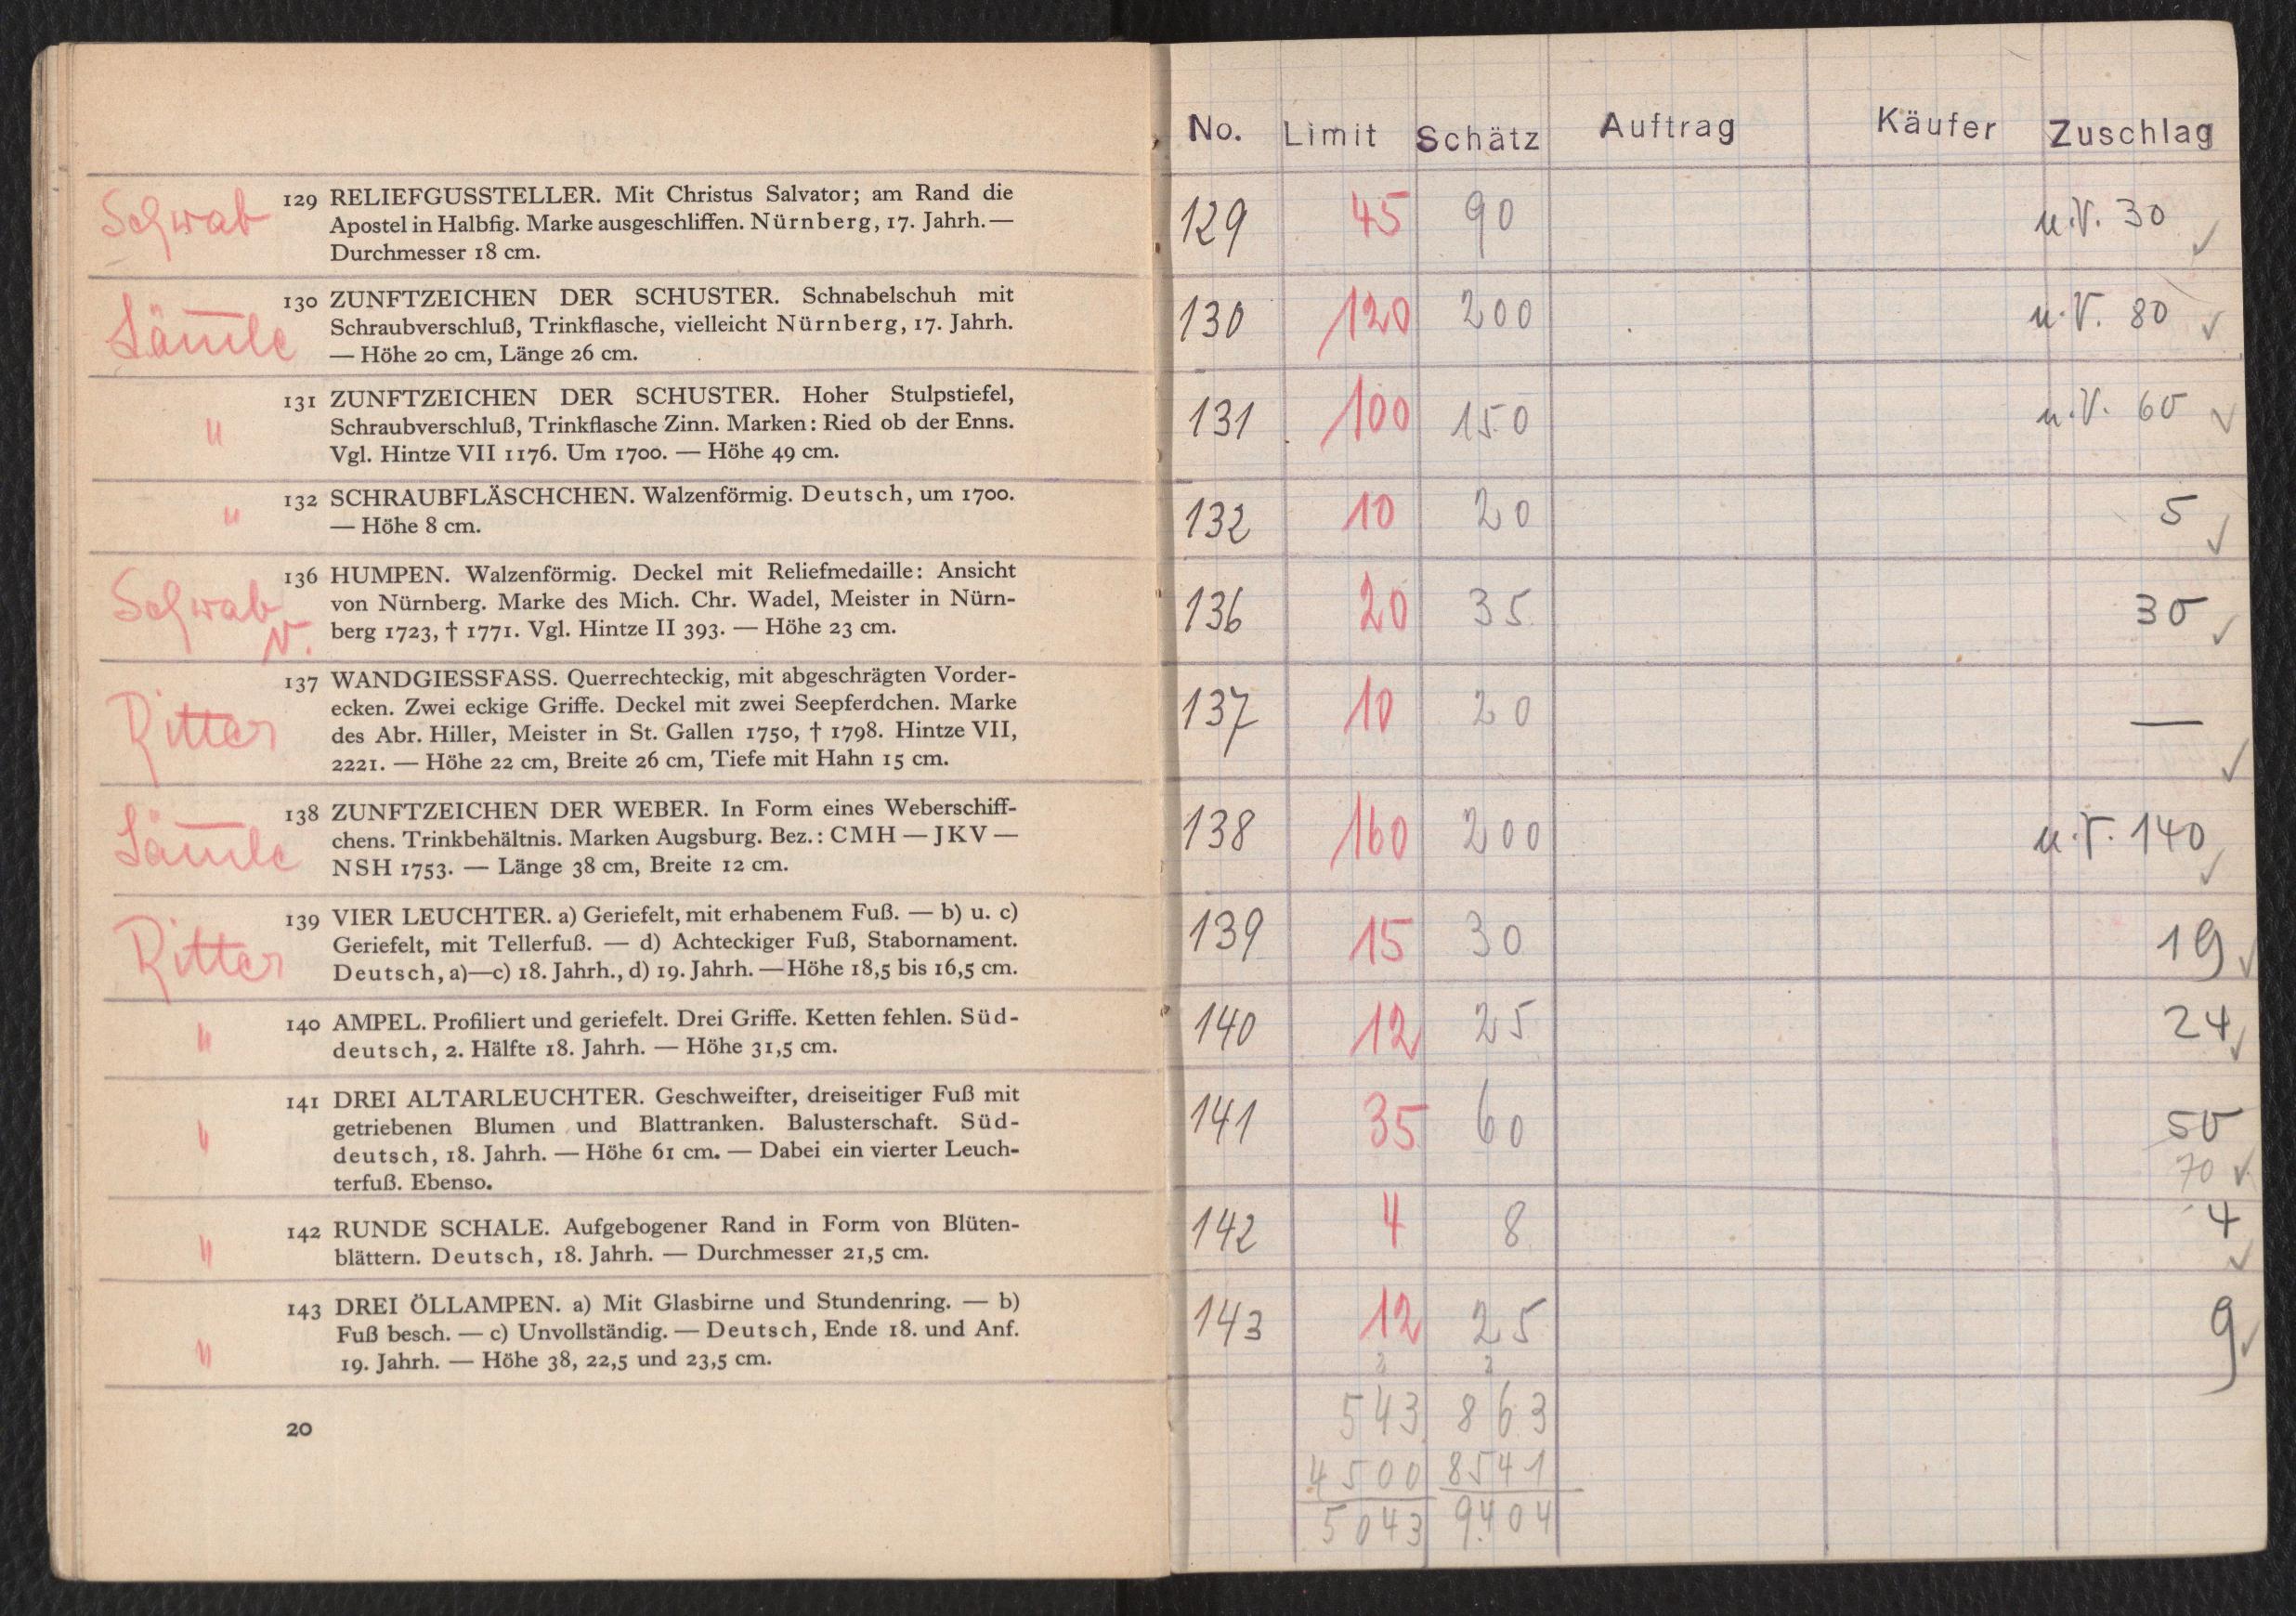 Schwab
129 RELIEFGUSSTELLER. Mit Christus Salvator; am Rand die
Apostel in Halbfig. Marke ausgeschliffen. Nürnberg, 17. Jahrh. —
Durchmesser 18 cm.
Lämle
130 ZUNFTZEICHEN DER SCHUSTER. Schnabelschuh mit
Schraubverschluß, Trinkflasche, vielleicht Nürnberg, 17. Jahrh.
— Höhe 20 cm, Länge 26 cm.
"
131 ZUNFTZEICHEN DER SCHUSTER. Hoher Stulpstiefel,
Schraubverschluß, Trinkflasche Zinn. Marken: Ried ob der Enns.
Vgl. Hintze VII 1176. Um 1700. — Höhe 49 cm.
"
132 SCHRAUBFLÄSCHCHEN. Walzenförmig. Deutsch, um 1700.
— Höhe 8 cm.
Schwab
N.
136 HUMPEN. Walzenförmig. Deckel mit Reliefmedaille: Ansicht
von Nürnberg. Marke des Mich. Chr. Wadel, Meister in Nürn-
berg 1723, † 1771. Vgl. Hintze II 393. — Höhe 23 cm.
Ritter
137 WANDGIESSFASS. Querrechteckig, mit abgeschrägten Vorder-
ecken. Zwei eckige Griffe. Deckel mit zwei Seepferdchen. Marke
des Abr. Hiller, Meister in St. Gallen 1750, † 1798. Hintze VII,
2221. — Höhe 22 cm, Breite 26 cm, Tiefe mit Hahn 15 cm.
Lämle
138 ZUNFTZEICHEN DER WEBER. In Form eines Weberschiff-
chens. Trinkbehältnis. Marken Augsburg. Bez.: CMH — JKV —
NSH 1753. — Länge 38 cm, Breite 12 cm.
Ritter
139 VIER LEUCHTER. a) Geriefelt, mit erhabenem Fuß. — b) u. c)
Geriefelt, mit Tellerfuß. — d) Achteckiger Fuß, Stabornament.
Deutsch, a)—c) 18. Jahrh., d) 19. Jahrh. — Höhe 18,5 bis 16,5 cm.
"
140 AMPEL. Profiliert und geriefelt. Drei Griffe. Ketten fehlen. Süd-
deutsch, 2. Hälfte 18. Jahrh. — Höhe 31,5 cm.
"
141 DREI ALTARLEUCHTER. Geschweifter, dreiseitiger Fuß mit
getriebenen Blumen und Blattranken. Balusterschaft. Süd-
deutsch, 18. Jahrh. — Höhe 61 cm. — Dabei ein vierter Leuch-
terfuß. Ebenso.
"
142 RUNDE SCHALE. Aufgebogener Rand in Form von Blüten-
blättern. Deutsch, 18. Jahrh. — Durchmesser 21,5 cm.
"
143 DREI ÖLLAMPEN. a) Mit Glasbirne und Stundenring. — b)
Fuß besch. — c) Unvollständig. — Deutsch, Ende 18. und Anf.
19. Jahrh. — Höhe 38, 22,5 und 23,5 cm.
20
No. Limit Schätz Auftrag Käufer Zuschlag
129 45 90 u.V. 30 ✓
130 120 200 u.V. 80 ✓
131 100 150 u.V. 60 ✓
132 10 20 5 ✓
136 20 35 30 ✓
137 10 20 — ✓
138 160 200 u.V. 140 ✓
139 15 30 19 ✓
140 12 25 24 ✓
141 35 60 50
70 ✓
142 4 8 4 ✓
143 12 25 9 ✓
2 2
543 863
4500 8541
5043 9404